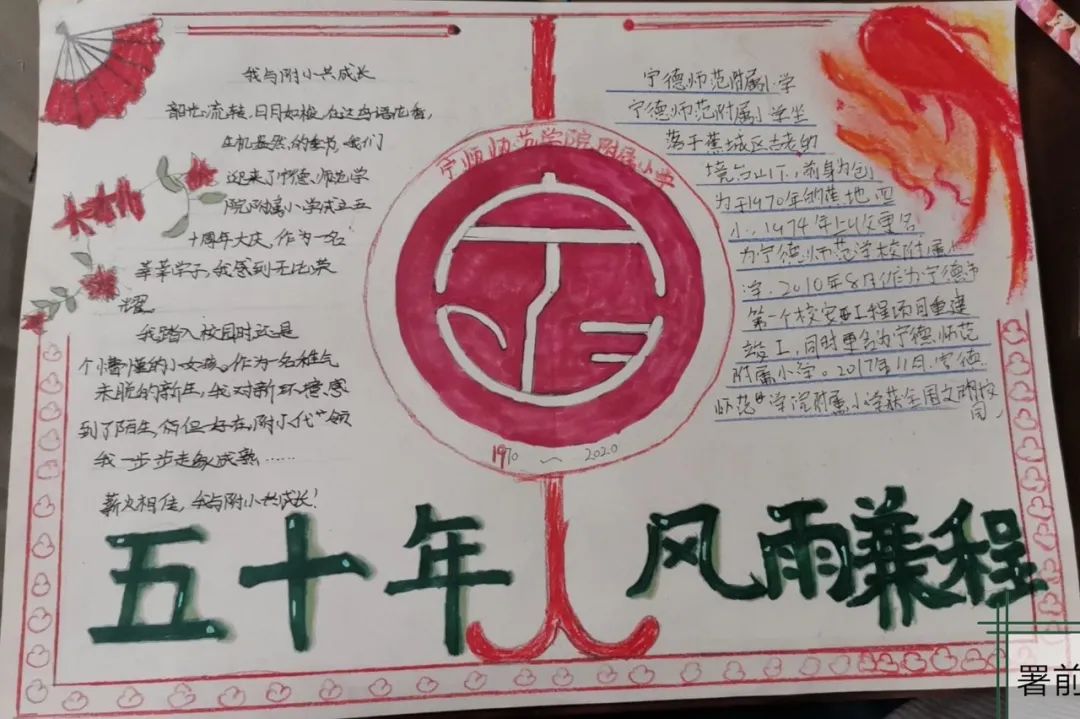 我与附小共成长
韶光流转,日月如梭,在这鸟语花香,
生机盎然的季节,我们
迎来了宁德师范学
院附属小学成立五
十周年大庆,作为一名
莘莘学子,我感到无比荣
耀。
我踏入校园时还是
个懵懂的小女孩。作为一名稚气
未脱的新生,我对新环境感
到了陌生,但好在附小代"领
我一步步走向成熟……
薪火相传,我与附小共成长!
宁师师范学院附属小学
1970 ~ 2020
宁德师范附属小学
宁德师范附属小学坐
落于蕉城区古老的
境台山下,前身为创
为于1970年的蕉地四
小,1974年上收更名
为宁德师范学校附属小
学,2010年8月作为宁德市
第一个校安工程项目重建
竣工,同时更名为宁德师范
附属小学。2017年11月,宁德
师范学院附属小学获全国文明校
园,
五十年 风雨兼程
署前